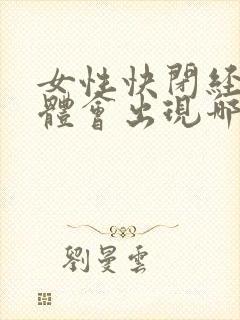 女性快閉経
體會出現哪
劉曼雲